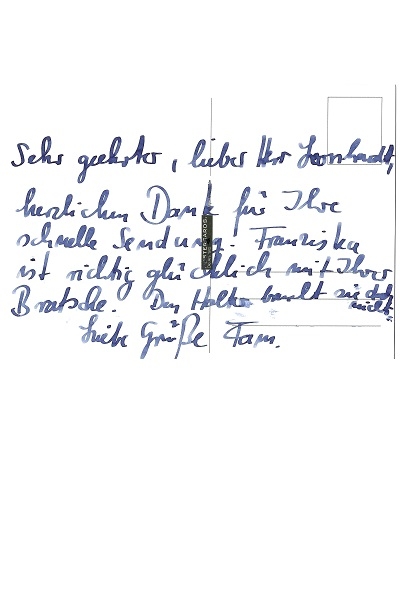 Sehr geehrter, lieber Herr Leonhardt,
herzlichen Dank für Ihre
schnelle Sendung. Franziska
ist richtig glücklich mit Ihrer
Bratsche. Den Halter braucht sie doch
nicht.
Liebe Grüße Fam.